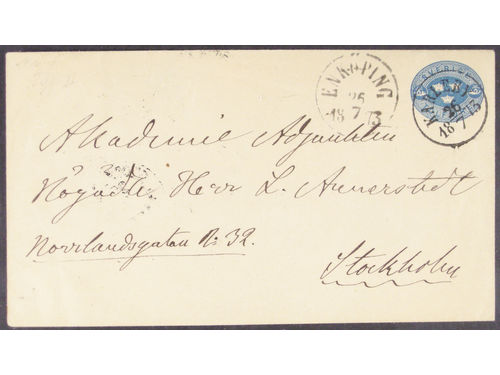 ENKÖPING
25
18 7 73
SVERIGE
26
18 7 73
Akademie Adjunkten
Högädle Herr L. Annerstedt
Norrlandsgatan No 32.
Stockholm